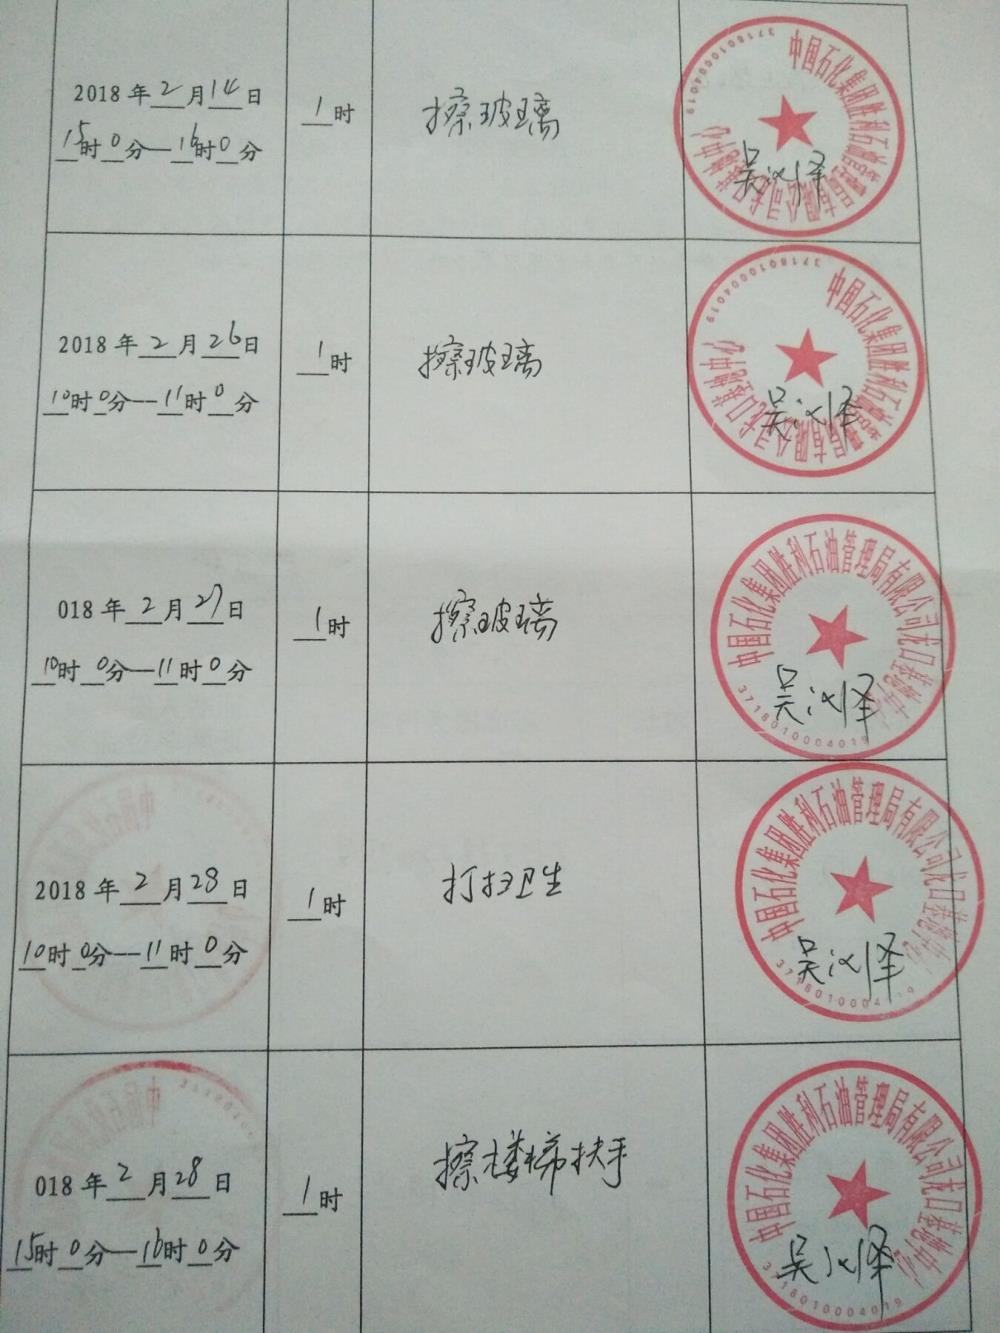 2018年2月14日
15时0分—16时0分
1时
擦玻璃
中国石化集团胜利石油管理局有限公司龙口基地中心
3718010004019
吴汶泽
2018年2月26日
10时0分—11时0分
1时
擦玻璃
中国石化集团胜利石油管理局有限公司龙口基地中心
3718010004019
吴汶泽
018年2月27日
10时0分—11时0分
1时
擦玻璃
中国石化集团胜利石油管理局有限公司龙口基地中心
3718010004019
吴汶泽
2018年2月28日
10时0分—11时0分
1时
打扫卫生
中国石化集团胜利石油管理局有限公司龙口基地中心
3718010004019
吴汶泽
018年2月28日
15时0分—16时0分
1时
擦楼梯扶手
中国石化集团胜利石油管理局有限公司龙口基地中心
3718010004019
吴汶泽